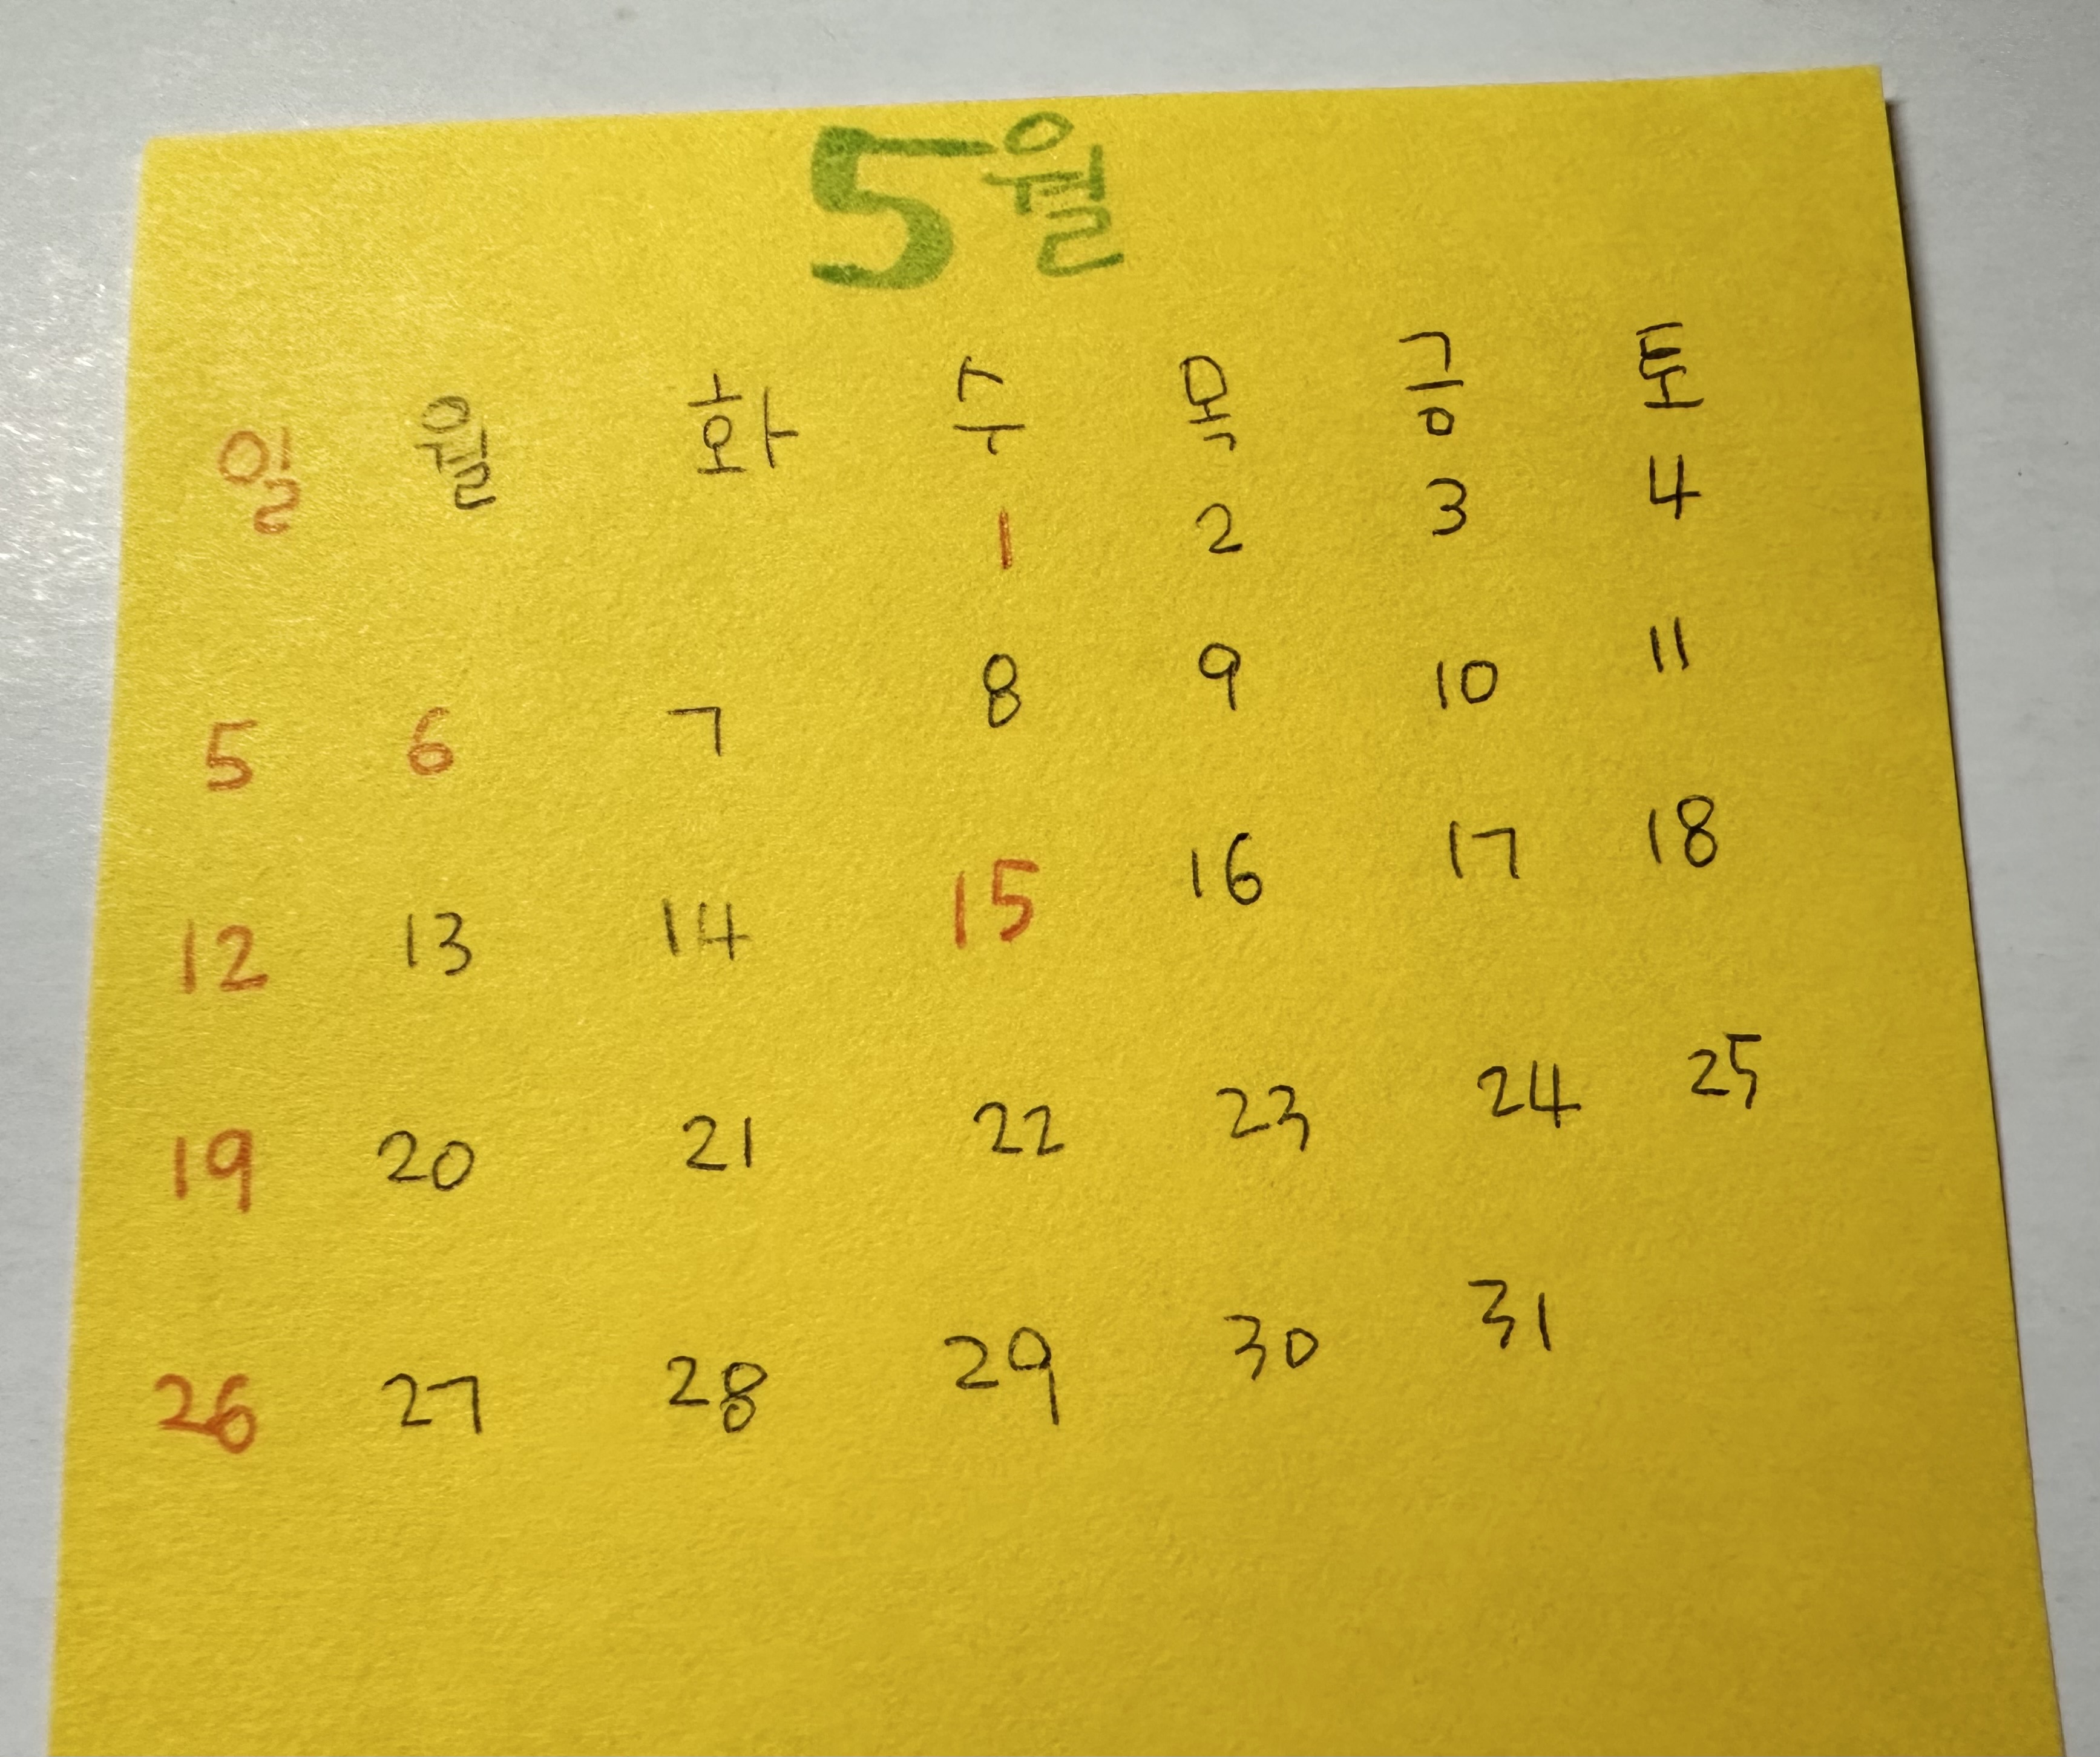 5월
일 월 화 수 목 금 토
1 2 3 4
5 6 7 8 9 10 11
12 13 14 15 16 17 18
19 20 21 22 23 24 25
26 27 28 29 30 31